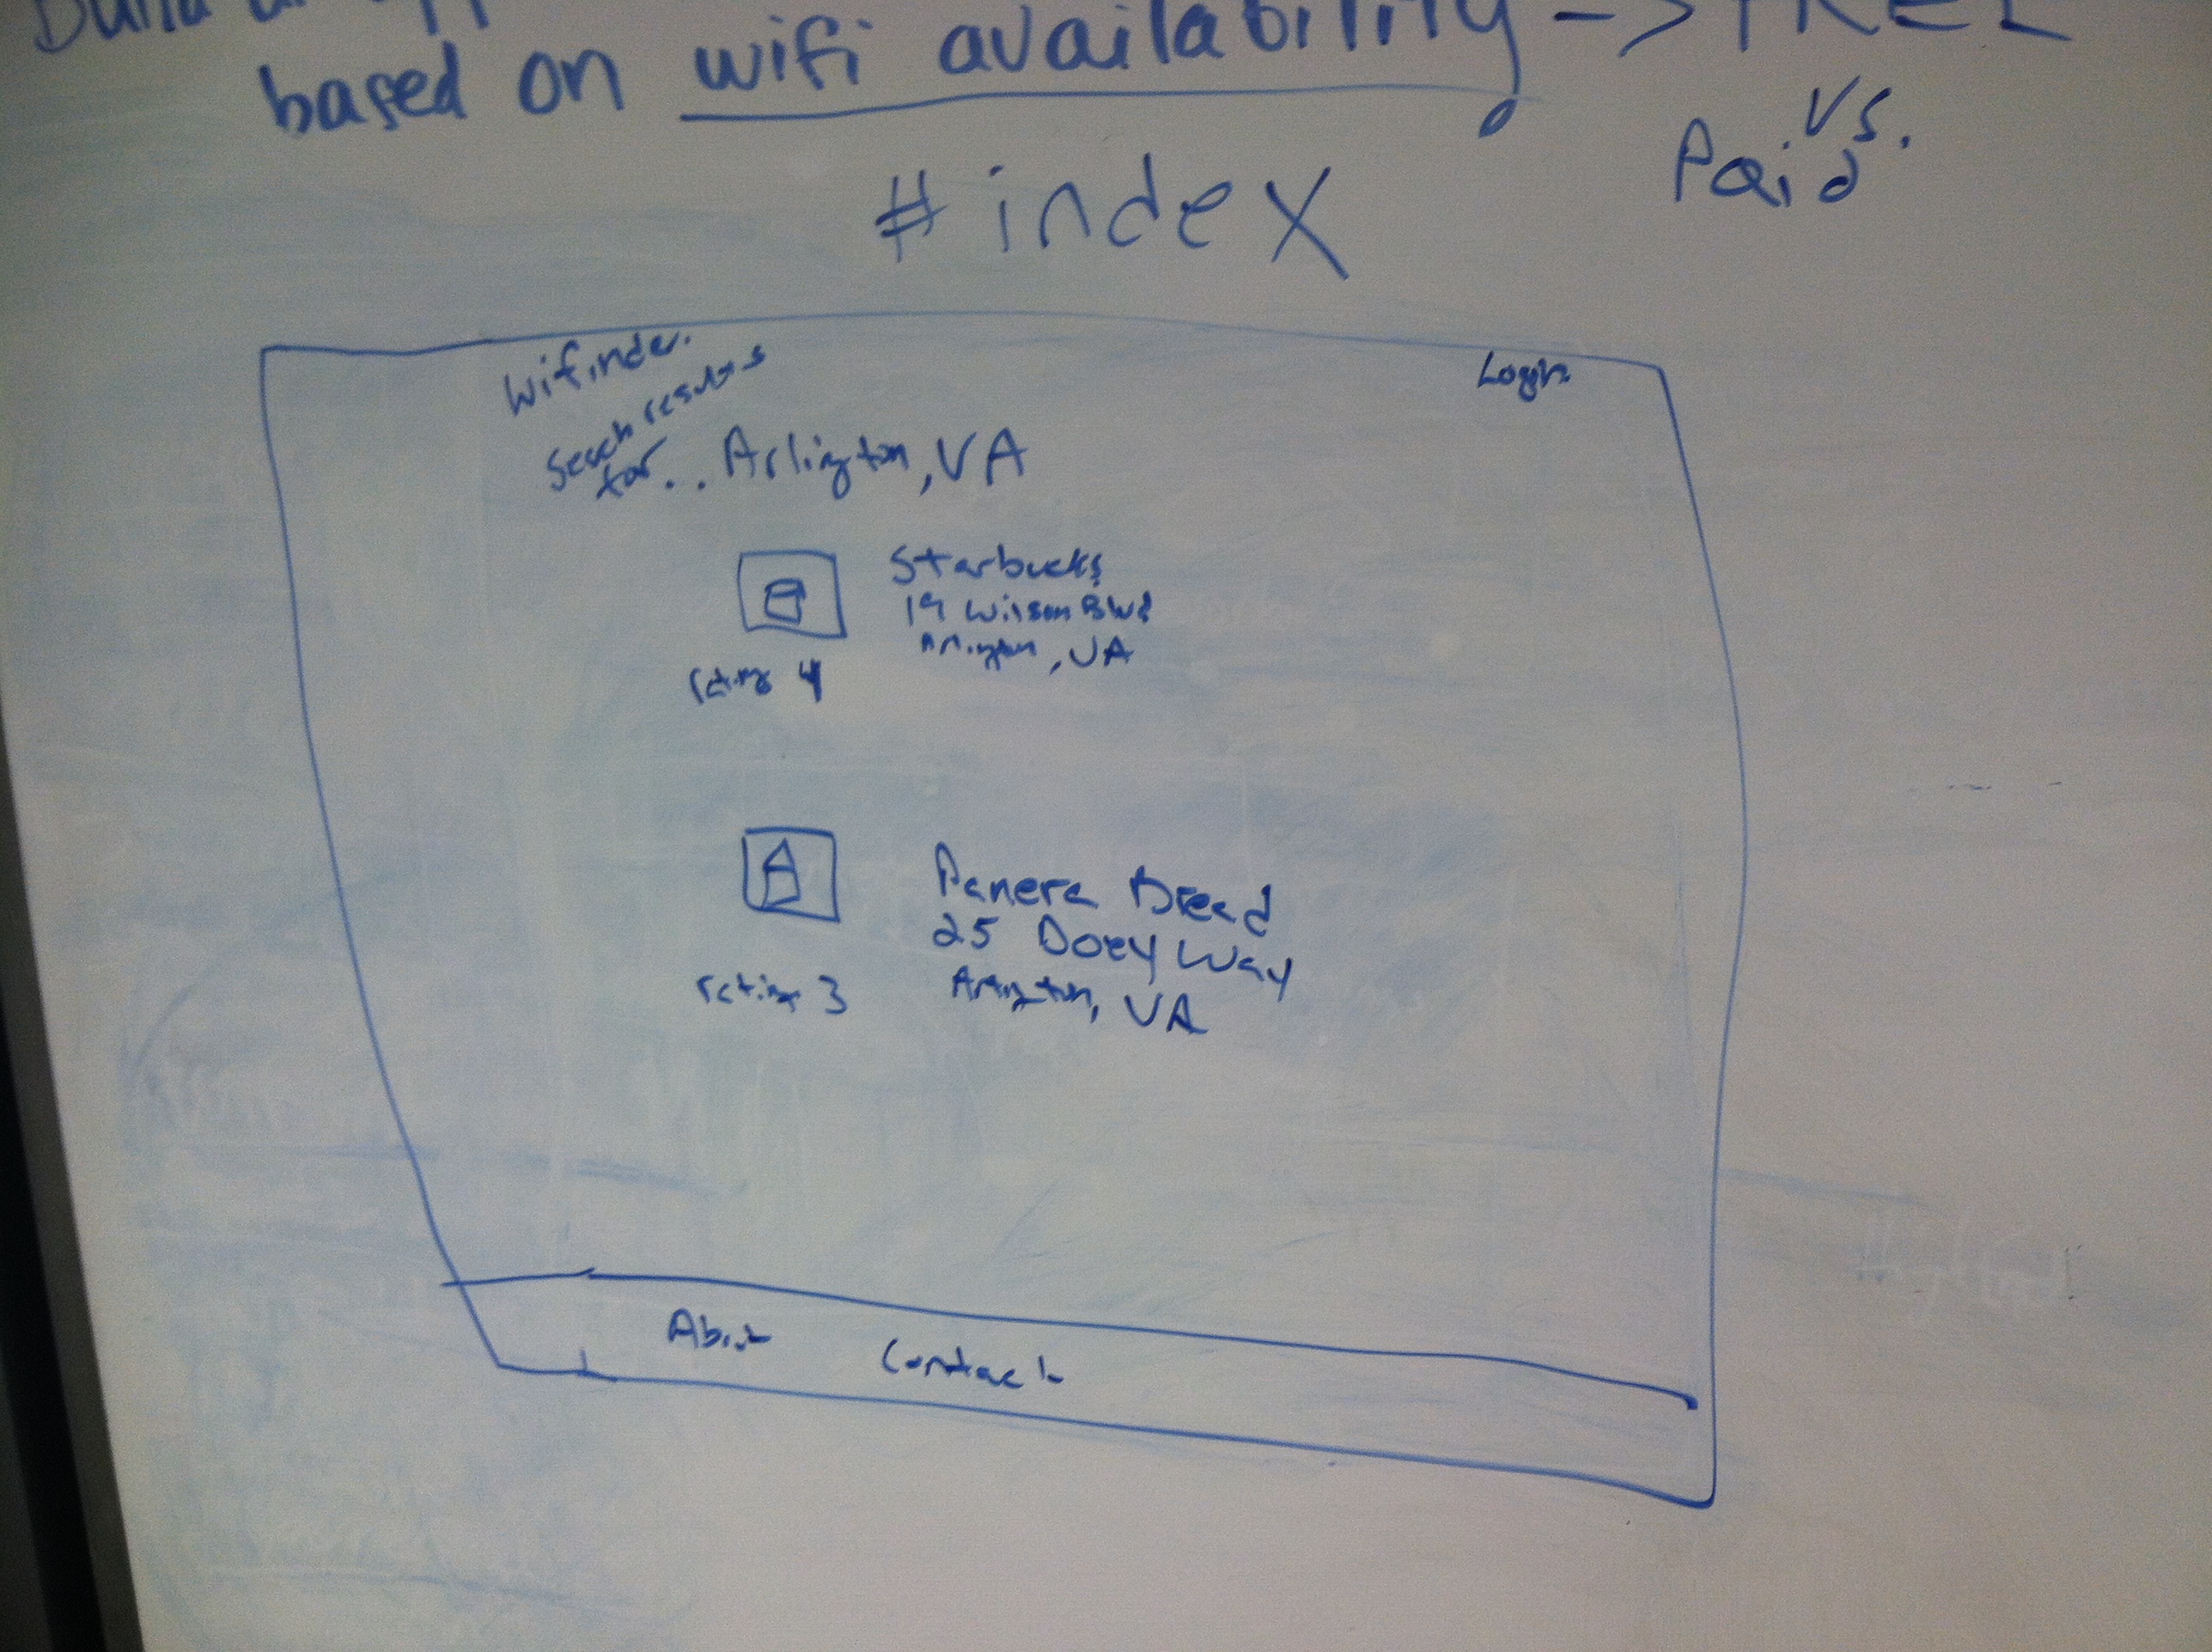 Build
based on wifi availability -> FREE
vs.
Paid
#index
Wifinder.
Login
Search results
for.. Arlington, VA
Starbucks
19 Wilson Blvd
Arlington, VA
rating 4
Panera Bread
25 Doey Way
Arlington, VA
rating 3
About Contact